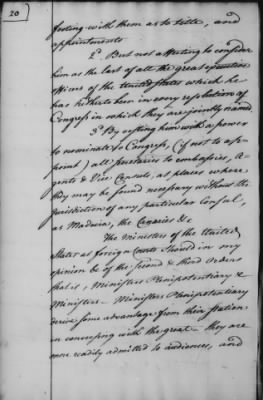 20
footing with them as to title, and
appointments
2d. But not affecting to consider
him as the last of all the great executive
officers of the United States which he
has hitherto been in every resolution of
Congress in which they are jointly named
3d By vesting him with a power
to nominate to Congress, (if not to ap-
point) all secretaries to embassies, A-
gents & Vice Consuls, at places where
they may be found necessary without the
jurisdiction of any particular Consul,
as Madeira, the Canaries &c
The Ministers of the United
States at foreign Courts should in my
opinion be of the Second & third Orders
that is, Ministers Plenipotentiary &
Ministers — Ministers Plenipotentiary
derive some advantage from their station
in conversing with the great — they are
more readily admitted to audiences, and